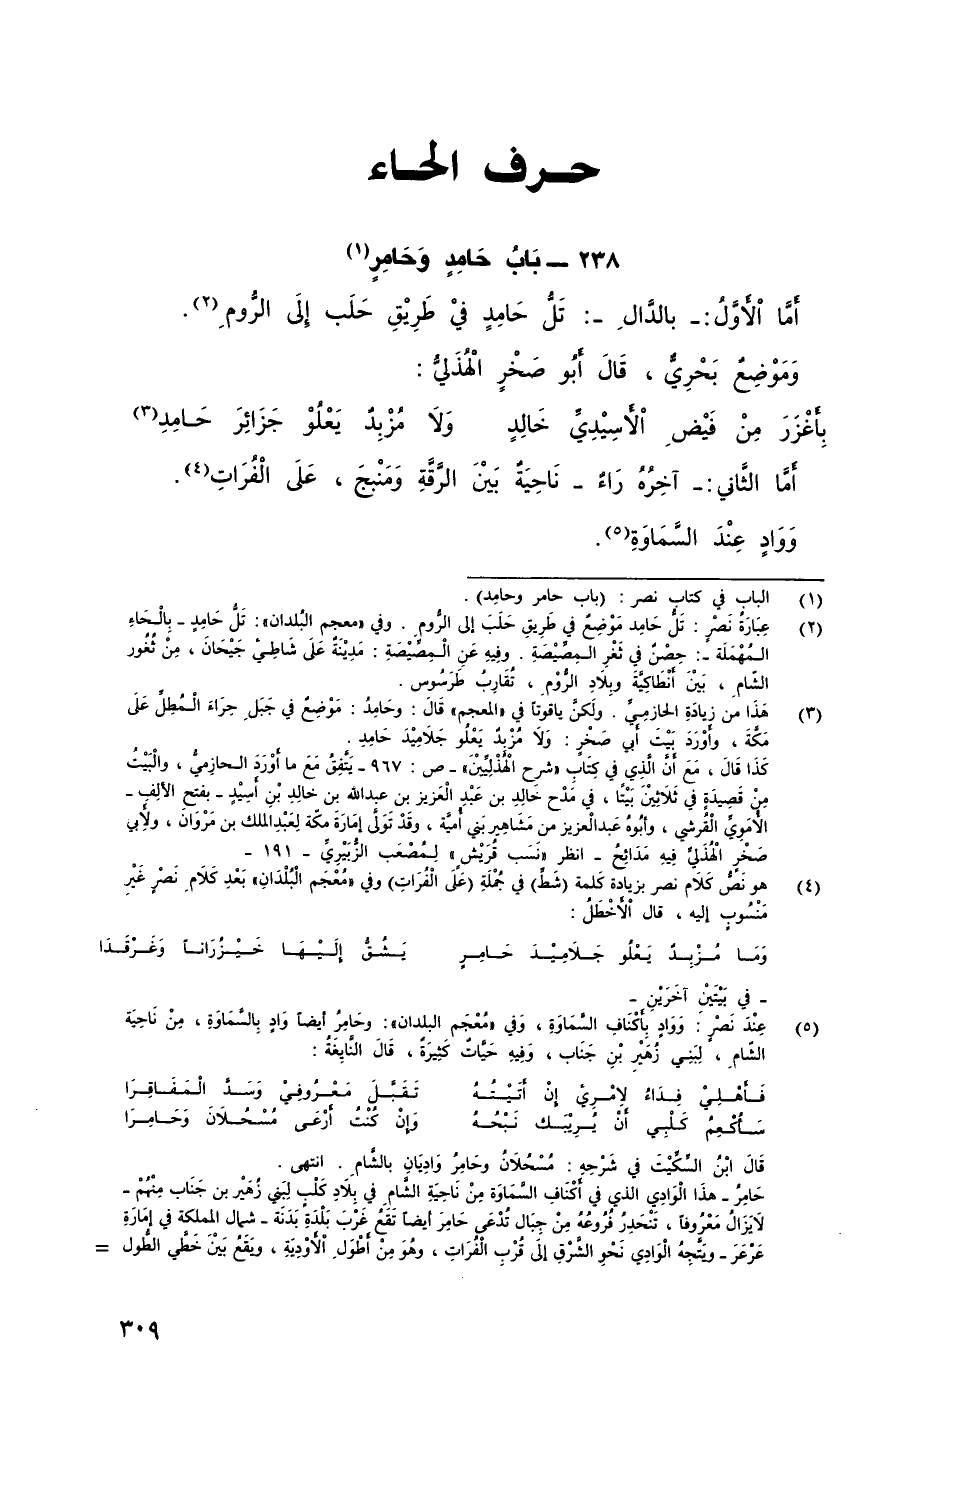 حرف الحاء
٢٣٨ ــ بَابُ حَامِدٍ وَحَامِرٍ(١)
أَمَّا الْأَوَّلُ:ـ بالدَّالِ ـ: تَلُّ حَامِدٍ فيْ طَرِيْقِ حَلَب إِلَى الرُّومِ(٢).
وَمَوْضِعٌ بَحْرِيٌّ ، قَالَ أَبُو صَخْرٍ الْهُذَليُّ :
بِأَغْزَرَ مِنْ فَيْضِ الْأَسِيْدِيِّ خَالِدٍ وَلَا مُزْبِدٌ يَعْلُوْ جَزَائِرَ حَامِدِ(٣)
أَمَّا الثَّاني:ـ آخِرُهُ رَاءٌ ـ نَاحِيَةٌ بَيْنَ الرَّقَّةِ وَمَنْبِجَ ، عَلَى الْفُرَاتِ(٤).
وَوَادٍ عِنْدَ السَّمَاوَةِ(٥).
(١) الباب في كتاب نصر : (باب حامر وحامد) .
(٢) عِبَارَةُ نَصْرٍ : تَلُّ حَامِد مَوْضِعٌ في طَرِيقِ حَلَبَ إلى الرُّومِ . وفي «معجم البُلدان»: تَلُّ حَامِد ـ بِالْحَاءِ
الْمُهْمَلَة ـ: حِصْنٌ في ثَغْرِ الْمِصِّيْصَةِ . وفِيهِ عَنِ الْمِصِّيْصَةِ : مَدِيْنَةٌ عَلَى شَاطِئِ جَيْحَانَ ، مِنْ ثُغُورِ
الشَّامِ ، بَيْنَ أَنْطَاكِيَّةَ وبِلَادِ الرُّوْمِ ، تُقَارِبُ طَرَسُوس .
(٣) هَذَا من زِيادَةِ الحَازِمِيِّ . ولَكنَّ ياقُوتاً في «المعجم» قَالَ : وحَامِدُ : مَوْضِعٌ في جَبَلِ حِرَاءَ الْمُطِلِّ عَلَى
مَكَّةَ ، وأَوْرَدَ بَيْتَ أَبي صَخْرٍ : وَلَا مُزْبِدٌ يَعْلُو جَلَامِيْدَ حَامِدِ .
كَذَا قَالَ ، مَعَ أَنَّ الَّذِي في كِتَابِ «شرح الْهُذَلِيِّيْنَ» ـ ص : ٩٦٧ ـ يَتَّفِقُ مَعَ ما أَوْرَدَ الحازميُّ ، والْبَيْتُ
مِنْ قَصِيدَةٍ في ثَلَاثِيْنَ بَيْتًا ، في مَدْحِ خَالِدِ بن عَبْدِ الْعَزيز بن عبدالله بن خَالِدِ بْنِ أَسِيْدٍ ـ بفتح الألِفِ ـ
الأُمَوِيِّ الْقُرشي ، وأَبُوهُ عبدالعزيز من مَشَاهِير بَني أُمَيَّة ، وقَدْ تَوَلَّى إمَارَةَ مكّةَ لِعَبدِالملك بن مَرْوَانَ ، ولأَبي
صَخْرٍ الْهُذَليِّ فِيهِ مَدَائِحُ ـ انظر «نَسَب قُرَيْشٍ» لِمُصْعَبِ الزُّبَيْرِيِّ ـ ١٩١ ـ
(٤) هو نَصُّ كَلَامِ نصر بزيادة كلمة (شَطِّ) في جُمْلَةِ (عَلَى الْفُرَاتِ) وفي «مُعْجَم الْبُلْدَانِ» بَعْدَ كَلَامِ نَصْرٍ غَيْرَ
مَنْسُوبٍ إليه ، قال الْأَخْطَلُ :
وَمَا مُزْبِدٌ يَعْلُو جَلَامِيْدَ حَامِرٍ يَشُقُّ إِلَيْهَا خَيْزُرَاناً وَغَرْقَدَا
ـ في بَيْتَيْنِ آخَرَيْنِ ـ
(٥) عِنْدَ نَصْرٍ : وَوَادٍ بِأَكْنَافِ السَّمَاوَةِ ، وَفي «مُعْجَم البلدان»: وحَامِرُ أيضاً وَادٍ بِالسَّمَاوَةِ ، مِنْ نَاحِيَةِ
الشَّامِ ، لِبَنِي زُهَيْرِ بْنِ جَنَاب ، وَفِيهِ حَيَّاتٌ كَثِيرَةٌ ، قَالَ النَّابِغَةُ :
فَأَهْلِيْ فِدَاءٌ لِامْرِئٍ إِنْ أَتَيْتُهُ تَقَبَّلَ مَعْرُوفِيْ وَسَدَّ الْمَفَاقِرَا
سَأَكْعِمُ كَلْبِي أَنْ يُرِيْبَكَ نَبْحُهُ وَإِنْ كُنْتُ أَرْعَى مُسْحُلَانَ وَحَامِرَا
قَالَ ابْنُ السِّكِّيْتِ في شَرْحِهِ : مُسْحُلَانُ وحَامِرُ وَادِيَانِ بالشَّامِ . انتهى .
حَامِرُ ـ هذا الْوَادِي الذي في أَكْنَافِ السَّمَاوَةِ مِنْ نَاحِيَةِ الشَّامِ في بِلَادِ كَلْبٍ لِبَنِي زُهَيْر بن جَناب مِنْهُمْ ـ
لَايَزَالُ مَعْرُوفاً ، تَنْحَدِرُ فُرُوعُهُ مِنْ جِبَالٍ تُدْعَى حَامِرَ أيضاً تَقَعُ غَرْبَ بَلْدَةِ بَدَنَة ـ شمال المملكة في إمَارَةِ
عَرْعَرَ ـ ويَتَّجِهُ الْوَادِي نَحْوَ الشَّرْقِ إلَى قُرْبِ الْفُرَاتِ ، وَهُوَ مِنْ أَطْوَلِ الْأَوْدِيَةِ ، ويَقَعُ بَيْنَ خَطَّي الطُّول =
٣٠٩